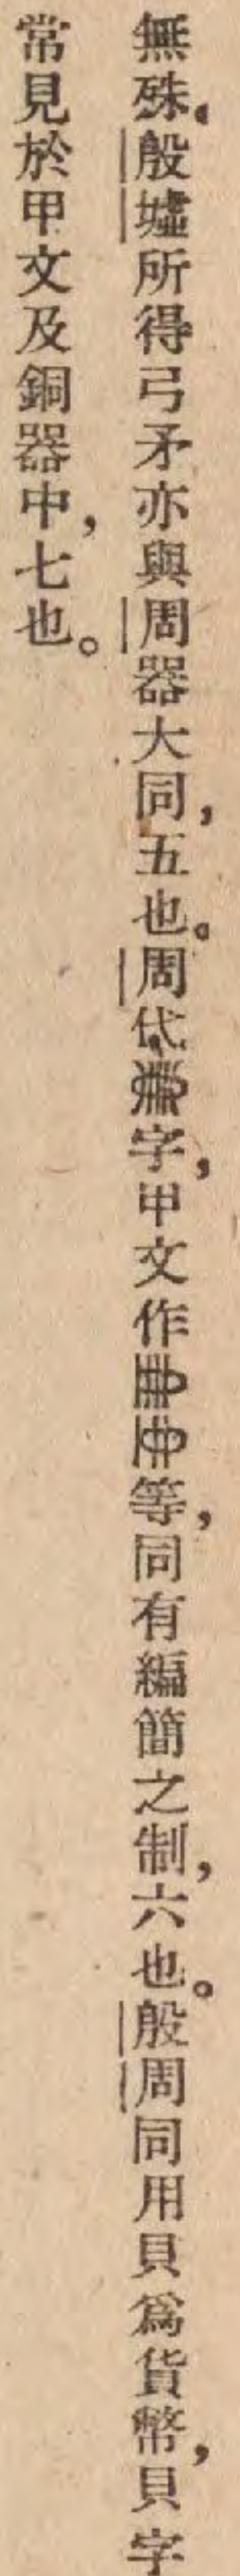 無殊。殷墟所得弓矛亦與周器大同，五也。周代字，甲文作等，同有編簡之制，六也。殷周同用貝爲貨幣，貝字
常見於甲文及銅器中，七也。